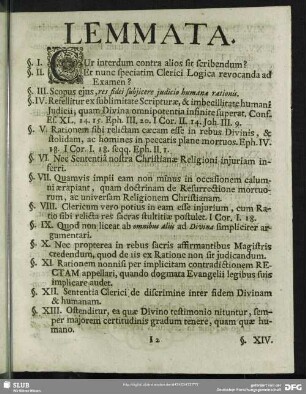 LEMMATA.
§. I. CUr interdum contra alios sit scribendum?
§. II. Et nunc speciatim Clerici Logica revocanda ad
Examen?
§. III. Scopus ejus, res fidei subjicere judicio humanæ rationis.
§. IV. Refellitur ex sublimitate Scripturæ, & imbecillitate humani
Judicii, quam Divina omnipotentia infinite superat. Conf.
Ef. XL. 14. 15. Eph. III. 20. I Cor. II. 14. Joh. III. 9.
§. V. Rationem sibi relictam cæcam esse in rebus Divinis, &
stolidam, ac homines in peccatis plane mortuos. Eph. IV.
18. I Cor. I. 18. seqq. Eph. II. 1.
§. VI. Nec Sententiâ nostrâ Christianæ Religioni injuriam in-
ferri.
§. VII. Quamvis impii eam non minus in occasionem calum-
niæ rapiant, quam doctrinam de Resurrectione mortuo-
rum, ac universam Religionem Christianam.
§. VIII. Clericum vero potius in eam esse injurium, cum Ra-
tio sibi relicta res sacras stultitiæ postulet. I Cor. I. 18.
§. IX. Quod non liceat ab omnibus aliis ad Divina simpliciter ar-
gumentari.
§. X. Nec propterea in rebus sacris affirmantibus Magistris
credendum, quod de iis ex Ratione non sit judicandum.
§. XI. Rationem nonnisi per implicitam contradictionem RE-
CTAM appellari, quando dogmata Evangelii legibus suis
implicare audet.
§. XII. Sententia Clerici de discrimine inter fidem Divinam
& humanam.
§. XIII. Ostenditur, ea quæ Divino testimonio nituntur, sem-
per majorem certitudinis gradum tenere, quam quæ hu-
mano.
§. XIV.
SLUB
DFG